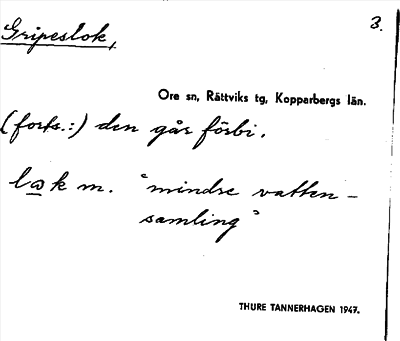 Gripeslok,
3.
Ore sn, Rättviks tg, Kopparbergs län.
(forts.:) den går förbi.
løk m. "mindre vatten-
samling"
THURE TANNERHAGEN 1947.